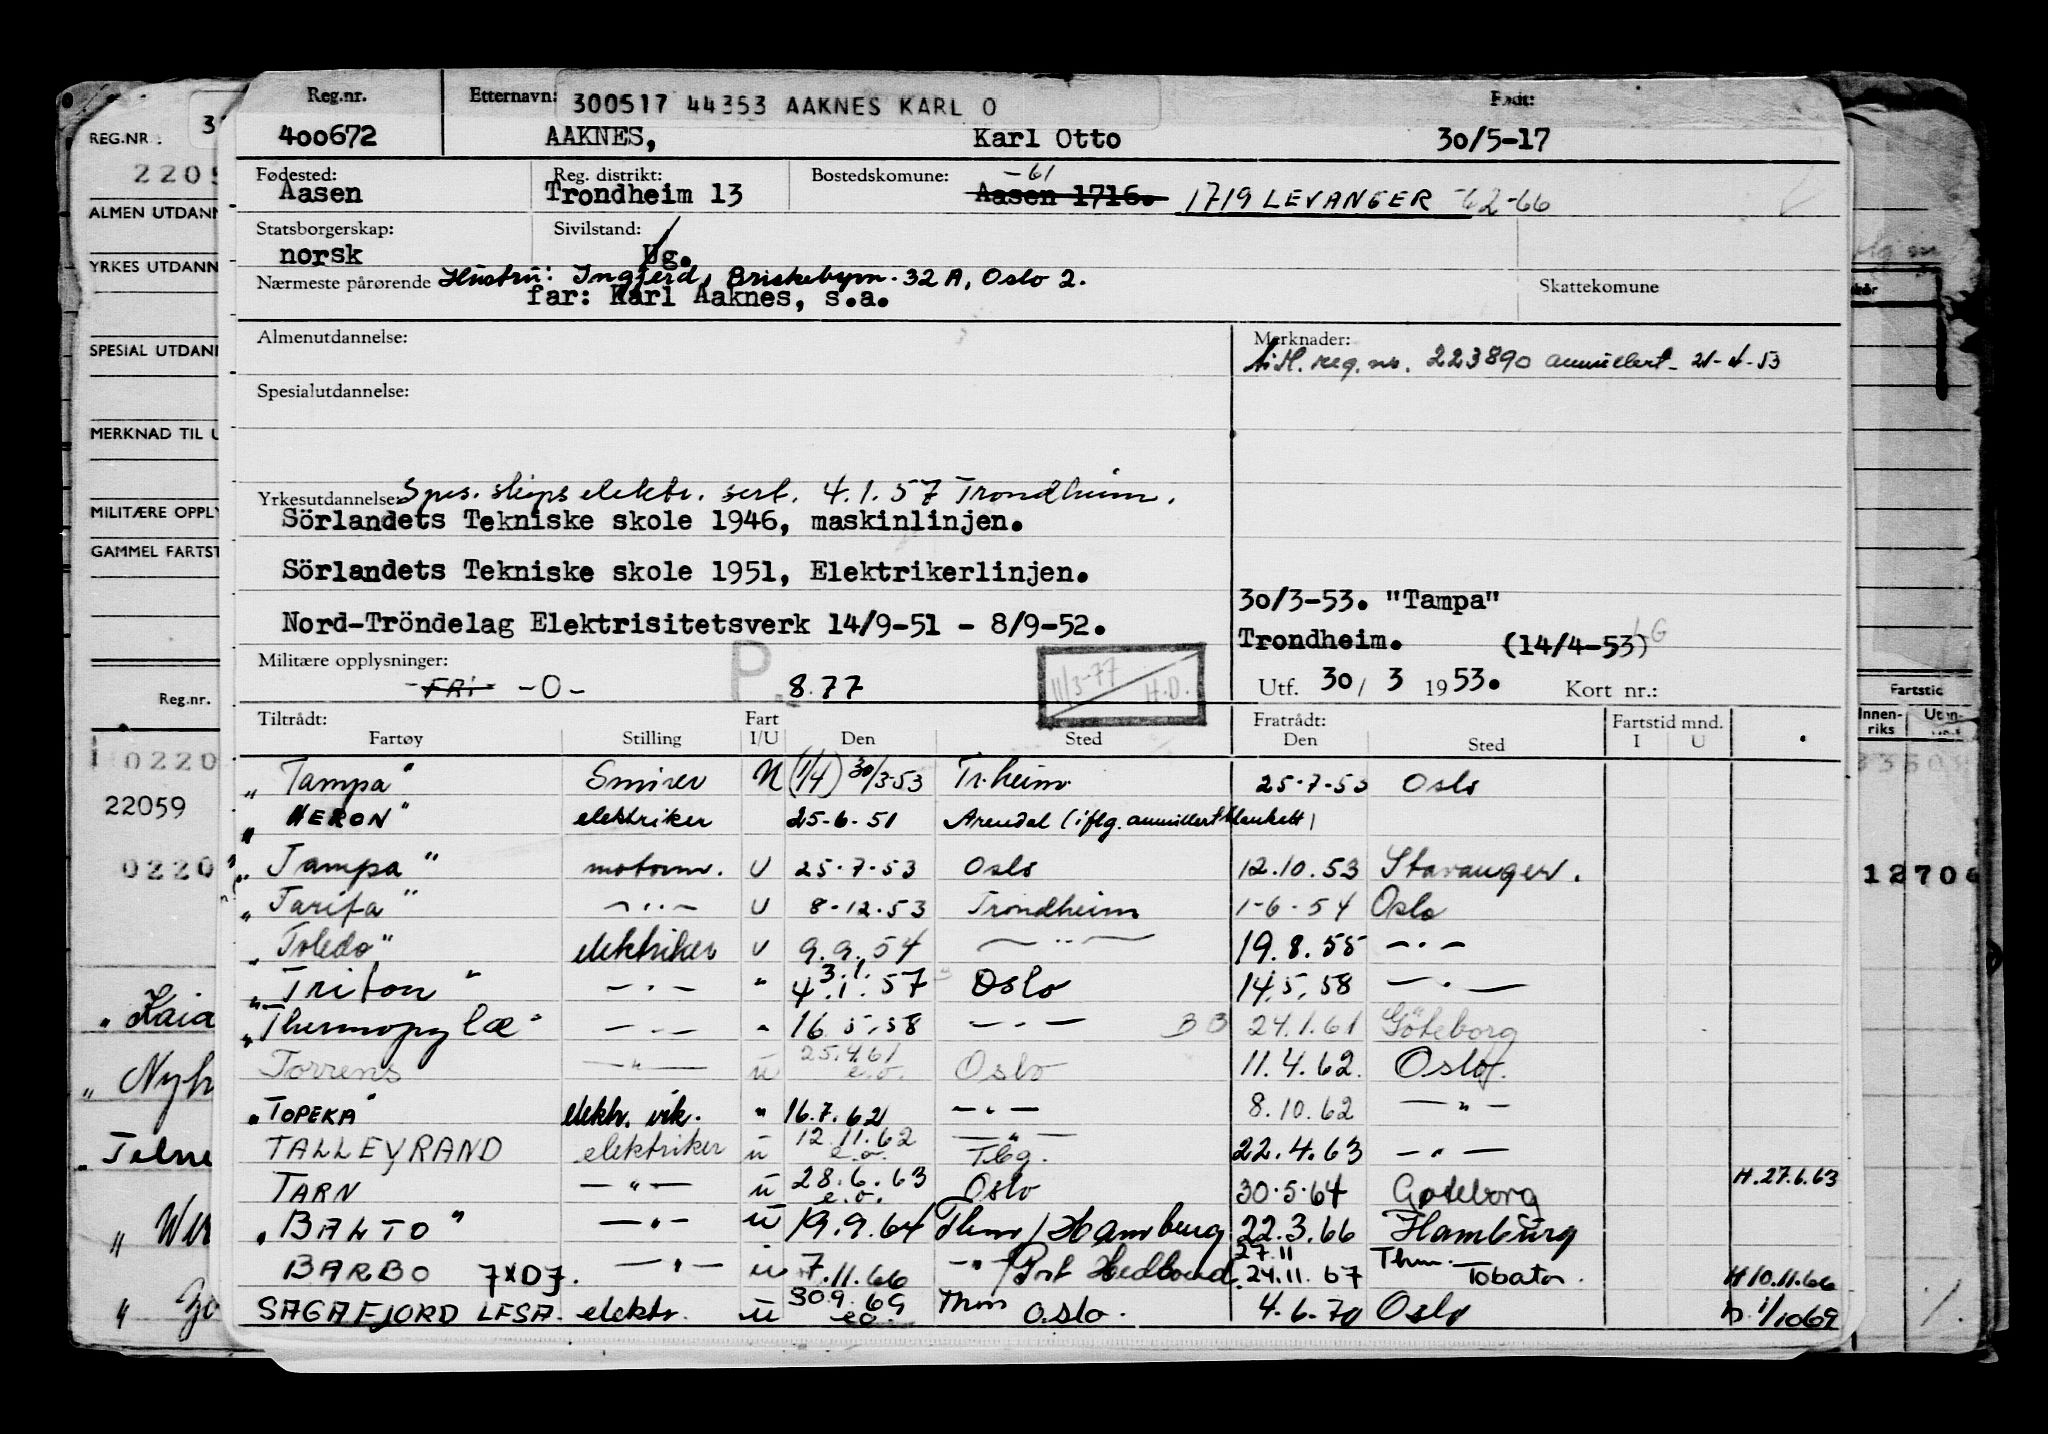 Reg.nr. Etternavn: 300517 44353 AAKNES KARL O Født:
400672 AAKNES, Karl Otto 30/5-17
Fødested: Reg. distrikt: Bostedskomune: -61
Aasen Trondheim 13 Aasen 1716. 1719 LEVANGER -62-66
Statsborgerskap: Sivilstand:
norsk Ug.
Nærmeste pårørende Hustru: Ingjerd, Briskebyvn. 32 A, Oslo 2. Skattekomune
far: Karl Aaknes, s.a.
Almenutdannelse: Merknader:
reg. nr. 223890 annullert - 21-4-53
Spesialutdannelse:
Yrkesutdannelse: Spes. skips elektr. sert. 4.1.57 Trondheim.
Sörlandets Tekniske skole 1946, maskinlinjen.
Sörlandets Tekniske skole 1951, Elektrikerlinjen.
30/3-53. "Tampa"
Nord-Tröndelag Elektrisitetsverk 14/9-51 - 8/9-52.
Trondheim. (14/4-53) LG
Militære opplysninger: P. 11/3-77 H.D.
FRI -0- 8.77 Utf. 30/ 3 1953. Kort nr.:
Tiltrådt: Fart Fratrådt: Fartstid mnd.
Fartøy Stilling I/U Den Sted Den Sted I U
"Tampa" Smører N (1/4) 30/3-53 Tr.heim 25-7-53 Oslo
"HERON" elektriker 25-6-51 Arendal (iflg. annullert blankett)
"Tampa" motorm. U 25-7-53 Oslo 12.10.53 Stavanger.
"Tarifa" -"- U 8-12-53 Trondheim 1-6-54 Oslo
"Toledo" elektriker U 9.9.54 -"- 19.8.55 -"-
"Triton" -"- " 3.1. 4.1.57 Oslo 14.5.58 -"-
"Thermopylæ" -"- " 16.5.58 -"- BB 24.1.61 Göteborg
Torrens -"- u 25.4.61 e.o. Oslo 11.4.62. Oslo.
"TOPEKA" elektr. vik. " 16.7.62 -"- 8.10.62 -"-
TALLEYRAND elektriker u 12.11.62 e.o. -"- Tbg. 22.4.63 -"-
TARN -"- u 28.6.63 e.o. Oslo 30.5.64 Gøteborg H.27.6.63
"BALTO" -"- u 19.9.64 Thm/Hamburg 22.3.66 Hamburg
BARBO 7XDJ. -"- u 7.11.66 -"-/Prt Hedland 27.11 24.11.67 Thm. Tobator. H 10.11.66
SAGAFJORD LESA. elektr. u 30.9.69 eo. Thm Oslo. 4.6.70 Oslo D. 1/1069
REG.NR.
2205
ALMEN UTDANN
YRKES UTDANN
SPESIAL UTDANN
MERKNAD TIL U
MILITÆRE OPPLY
GAMMEL FARTST
Reg.nr.
0220
22059
0220
"Kaia
"Nyh
Fartstid
Innen-
riks
Uten-
12706